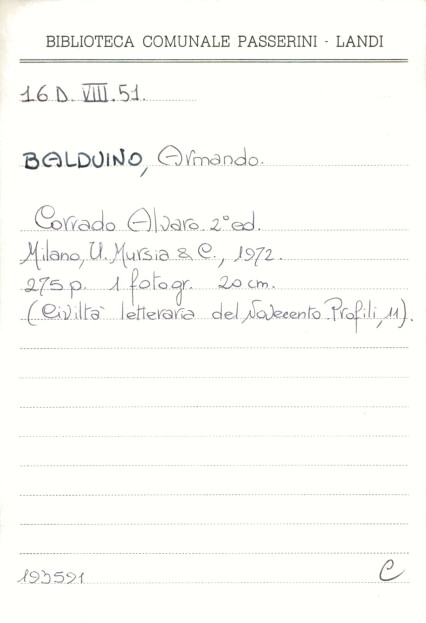 BIBLIOTECA COMUNALE PASSERINI - LANDI
16 D. VIII. 51.
BALDUINO, Armando.
Corrado Alvaro. 2° ed.
Milano, U. Mursia & C., 1972.
275 p. 1 fotogr. 20 cm.
(Civiltà letteraria del Novecento. Profili, 11).
193591 C